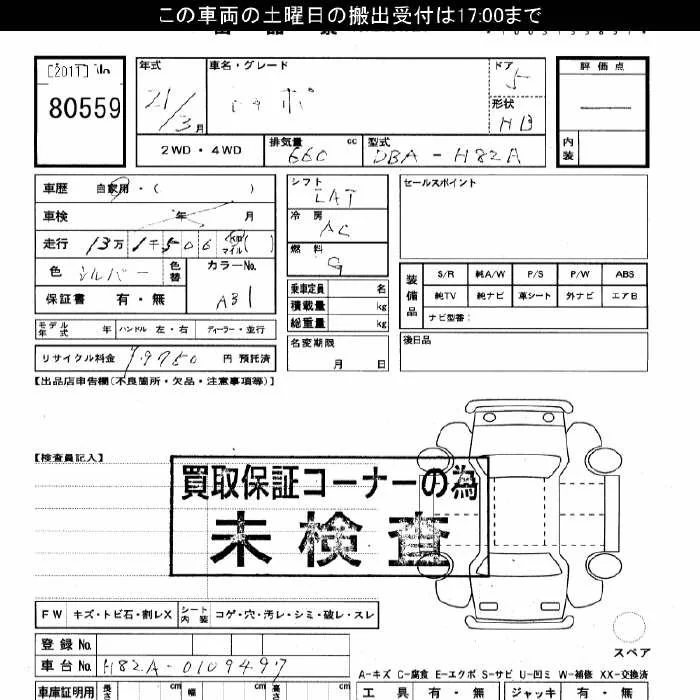 この車両の土曜日の搬出受付は17:00まで
[2011] No
80559
年式
21/3月
車名・グレード
トッポ
ドア
5
形状
HB
評価点
内装
2WD・4WD
排気量
660 cc
型式
DBA-H82A
車歴 自家用・( )
車検 年 月
走行 13万 1千506 km マイル( )
色 シルバー 色替
カラーNo.
A31
保証書 有・無
モデル年式 年 ハンドル 左・右 ディーラー・並行
リサイクル料金 9750 円 預託済
シフト
LAT
冷房
AC
燃料
G
乗車定員 名
積載量 kg
総重量 kg
名変期限
月 日
セールスポイント
装備品
S/R 純A/W P/S P/W ABS
純TV 純ナビ 革シート 外ナビ エアB
ナビ型番:
後日品
【出品店申告欄(不良箇所・欠品・注意事項等)】
【検査員記入】
買取保証コーナーの為
未検査
FW キズ・トビ石・割レX シート内装 コゲ・穴・汚レ・シミ・破レ・スレ
スペア
登録No.
車台No. H82A-0109497
A-キズ C-腐食 E-エクボ S-サビ U-凹ミ W-補修 XX-交換済
車庫証明用 長さ cm 幅 cm 高さ cm
工具 有・無 ジャッキ 有・無